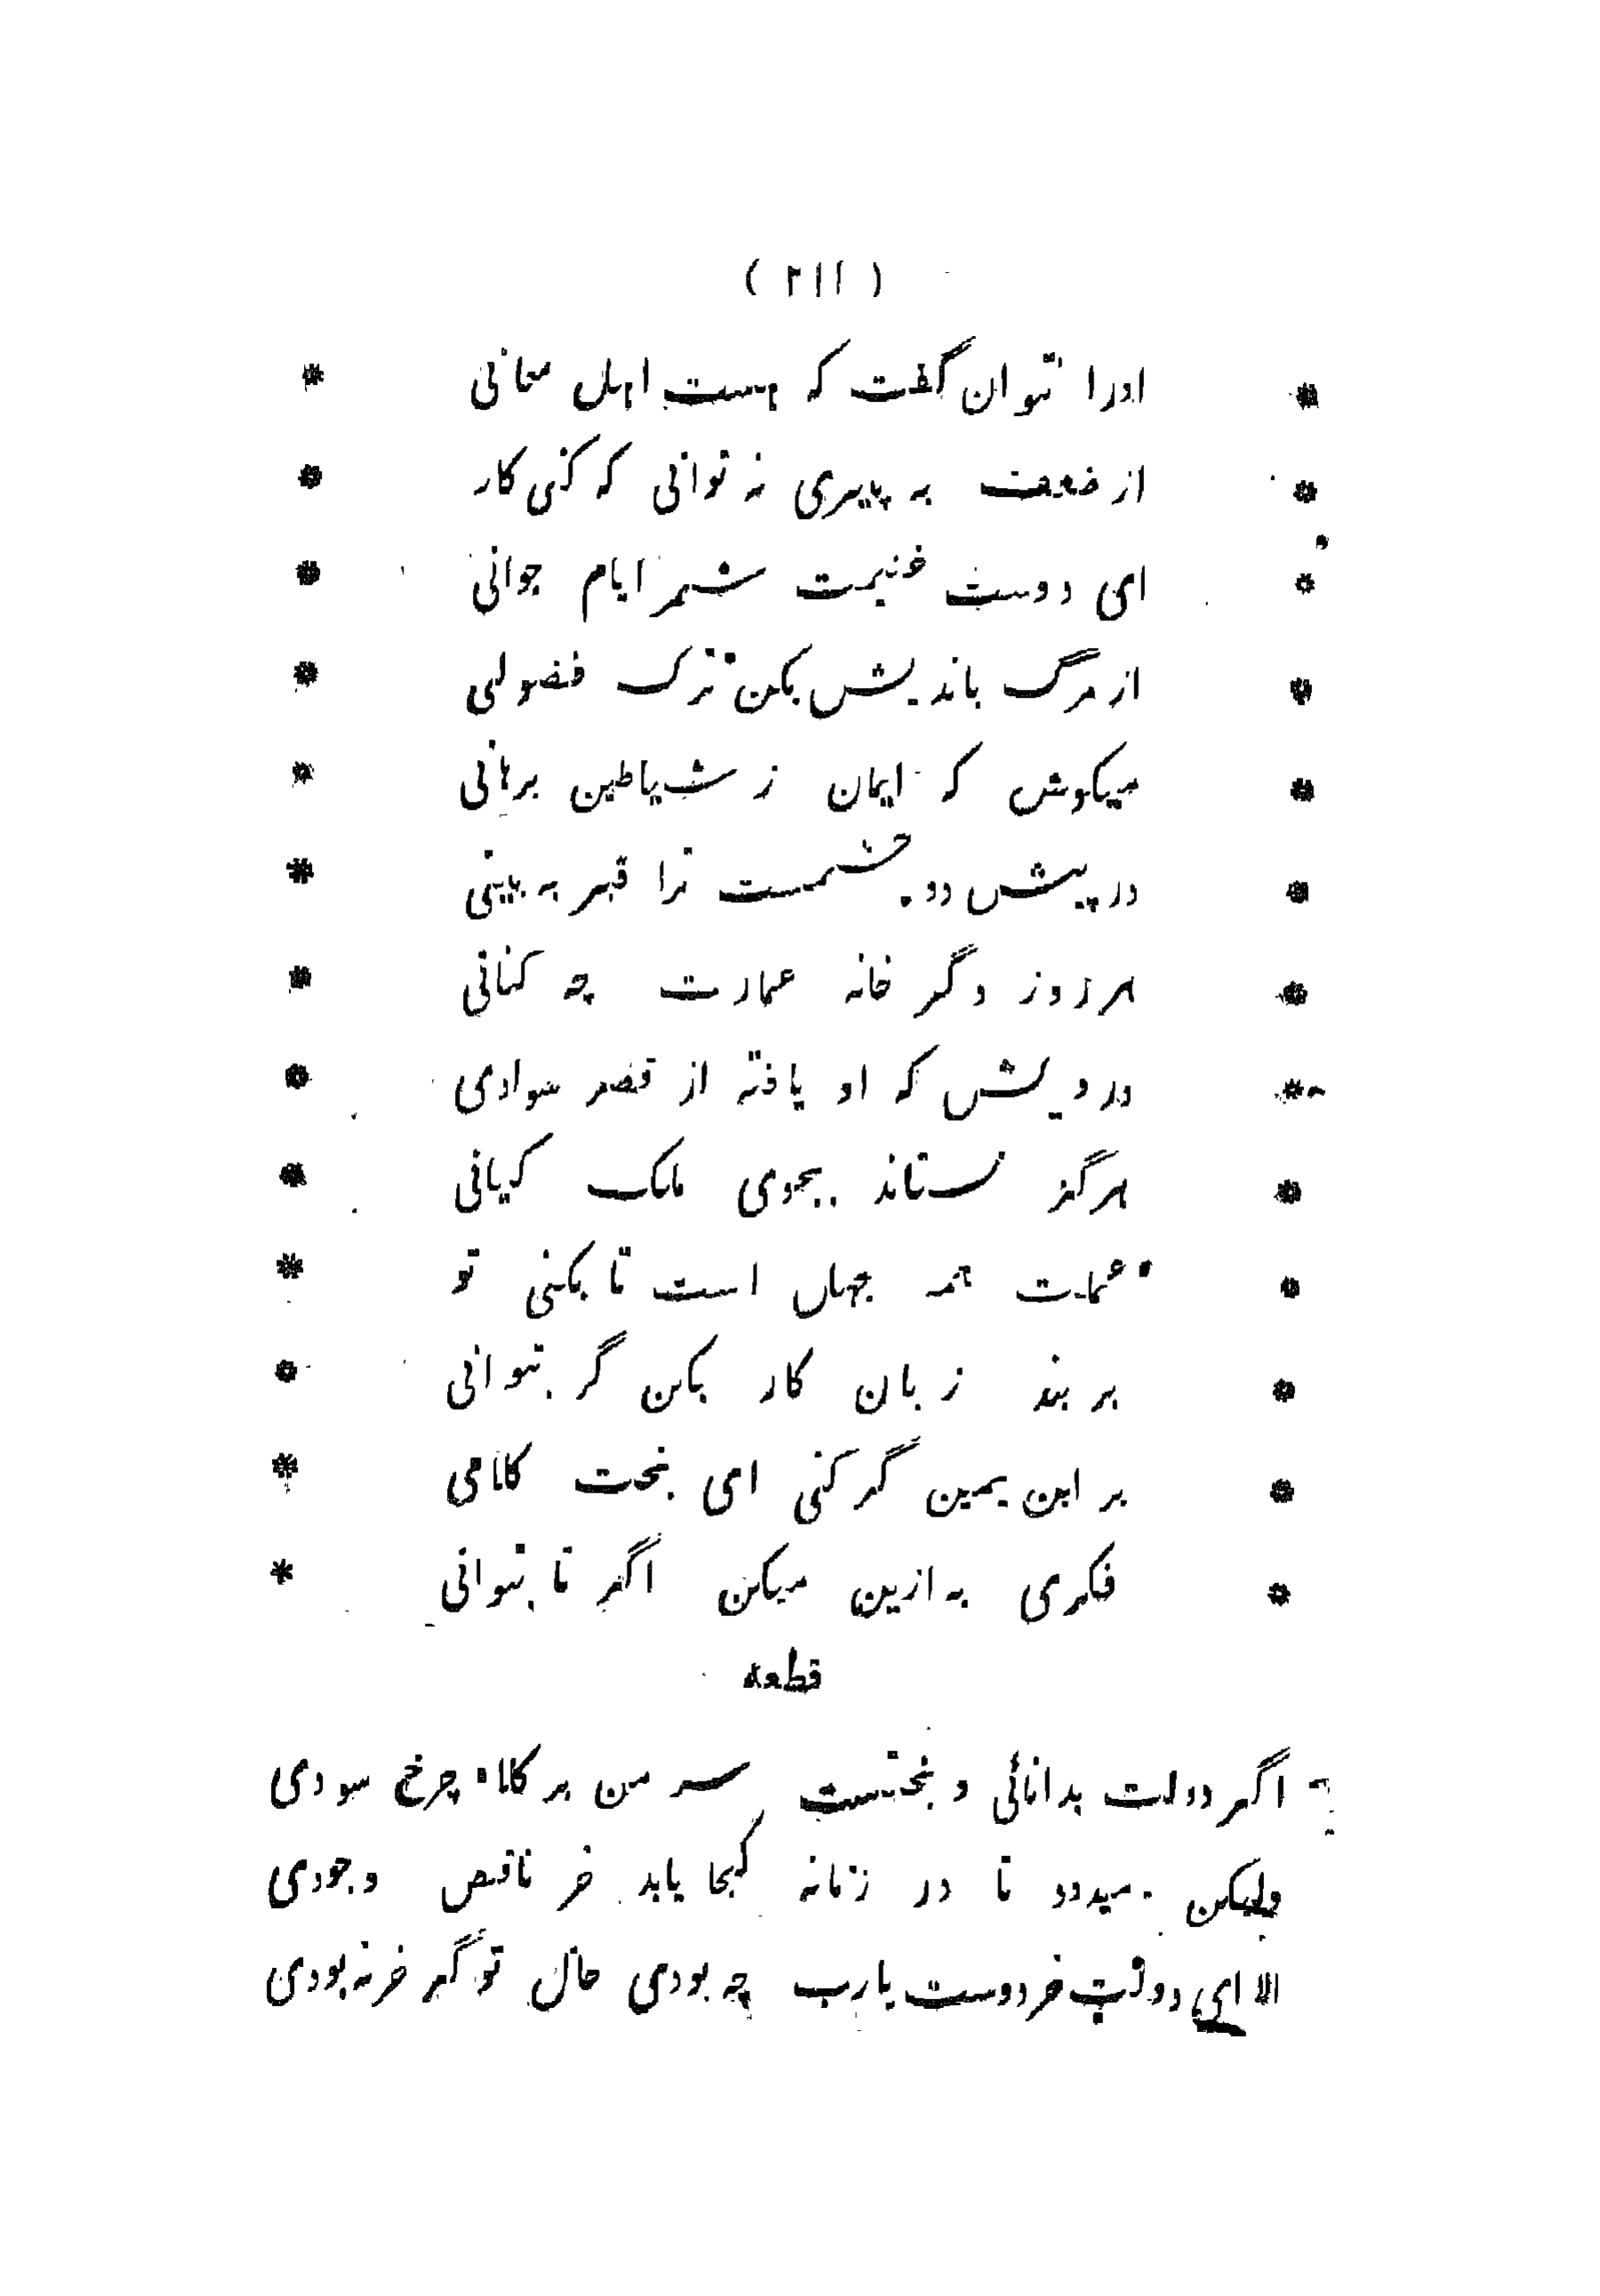 ( ۲۱۱ )
* اورا نتوان گفت که هست اهل معانی *
* از ضعف به پیری نه توانی که کنی کار *
* ای دوست غنیمت شمر ایام جوانی *
* از مرگ باندیش بکن ترک فضولی *
* میکوش که ایمان ز شیاطین برهانی *
* در پیش دو چشمست ترا قبر به بینی *
* هر روز دگر خانه عمارت چه کنانی *
* درویش که او یافته از قصر سوادی *
* هرگز نستاند بجوی ملک کیانی *
* عملت همه جهان است تا بکنی تو *
* بر بند زبان کار بکن گر بتوانی *
* بر ابن یمین گر کنی ای بخت کلامی *
* فکری به ازین میکن اگر تا بتوانی *
قطعه
اگر دولت بدانائی و بختست سر من بر کلاه چرخ سودی
ولیکن میدود تا در زمانه کجا یابد خر ناقص وجودی
الا ای دولت خردوست یارب چه بودی حال تو گر خر نه بودی